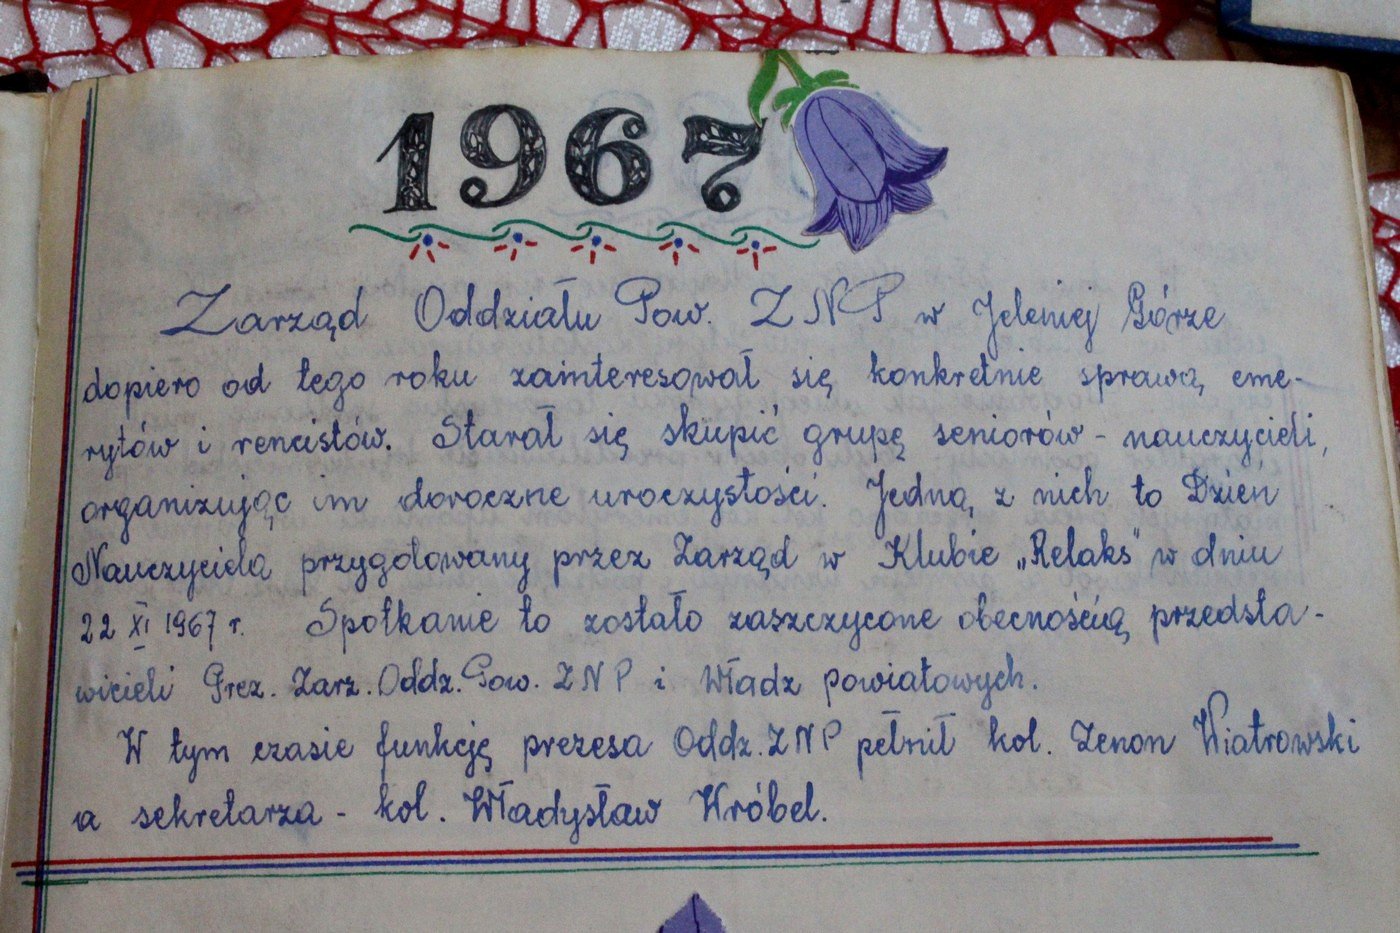 1967
Zarząd Oddziału Pow. ZNP w Jeleniej Górze
dopiero od tego roku zainteresował się konkretnie sprawą eme-
rytów i rencistów. Starał się skupić grupę seniorów - nauczycieli,
organizując im doroczne uroczystości. Jedną z nich to Dzień
Nauczyciela przygotowany przez Zarząd w Klubie „Relaks" w dniu
22 XI 1967 r. Spotkanie to zostało zaszczycone obecnością przedsta-
wicieli Prez. Zarz. Oddz. Pow. ZNP i Władz powiatowych.
W tym czasie funkcję prezesa Oddz. ZNP pełnił kol. Zenon Wiatrowski
a sekretarza - kol. Władysław Wróbel.